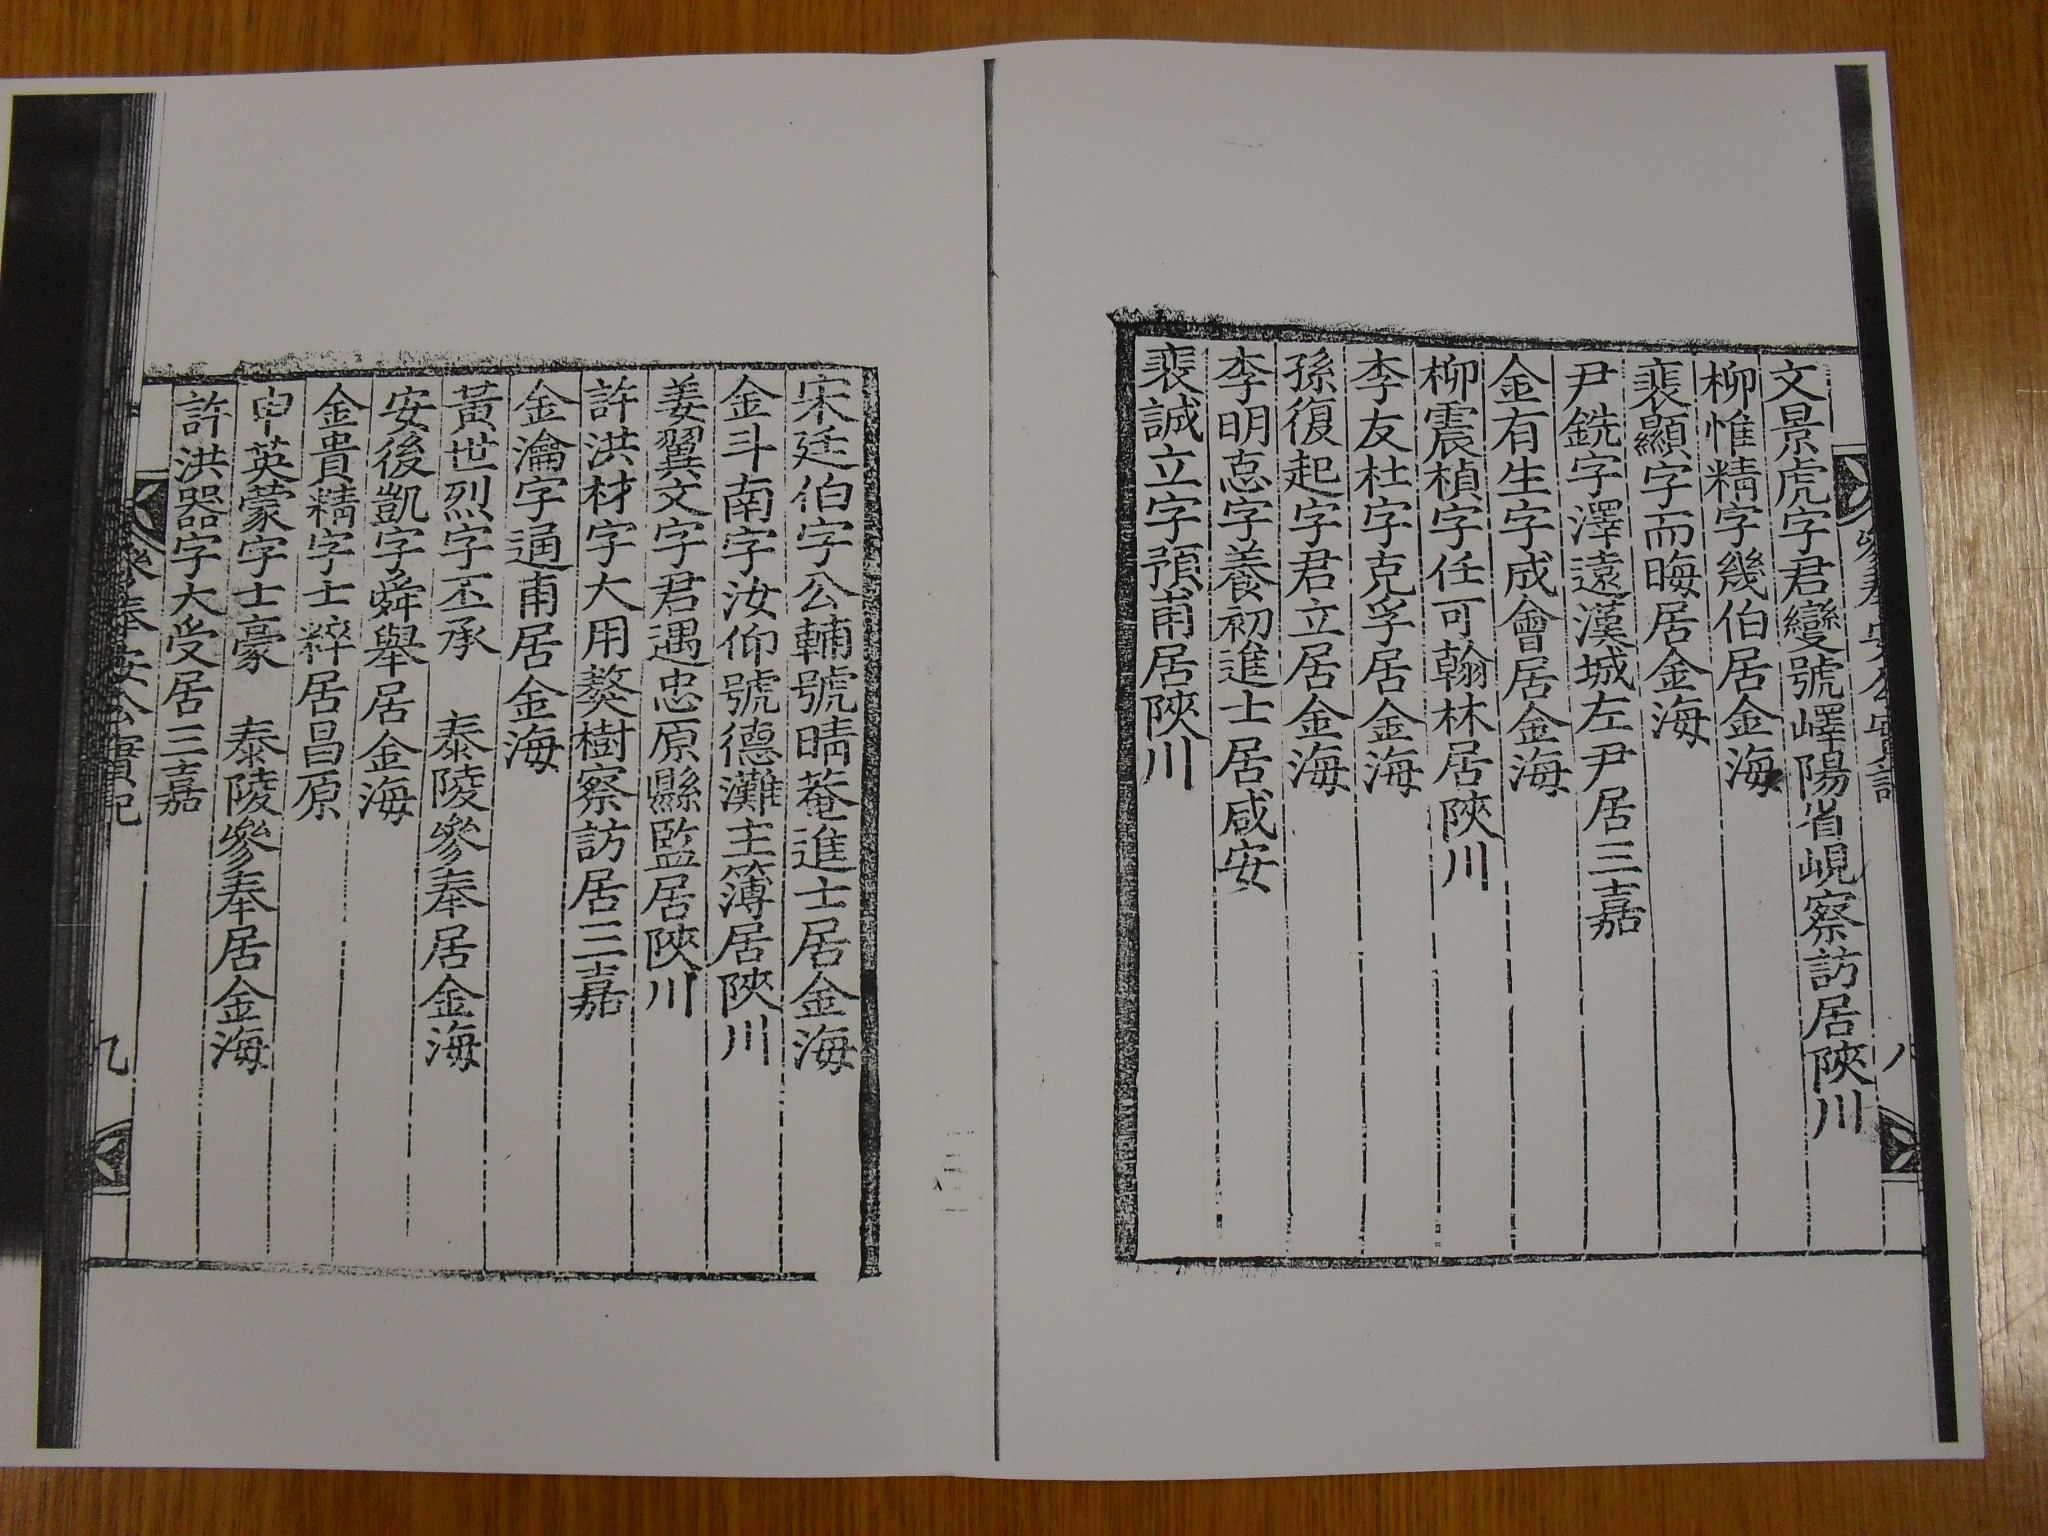 文景虎字君變號嶧陽省峴察訪居陜川
柳惟精字幾伯居金海
裵顯字而晦居金海
尹銑字澤遠漢城左尹居三嘉
金有生字成會居金海
柳震楨字任可翰林居陜川
李友杜字克孚居金海
孫復起字君立居金海
李明怘字養初進士居咸安
裵誠立字預甫居陜川
宋廷伯字公輔號晴菴進士居金海
金斗南字汝仰號德灘主簿居陜川
姜翼文字君遇忠原縣監居陜川
許洪材字大用獒樹察訪居三嘉
金瀹字通甫居金海
黃世烈字丕承 泰陵參奉居金海
安後凱字舜舉居金海
金貴精字士粹居昌原
申英蒙字士豪 泰陵參奉居金海
許洪器字大受居三嘉
參奉安公實記
九